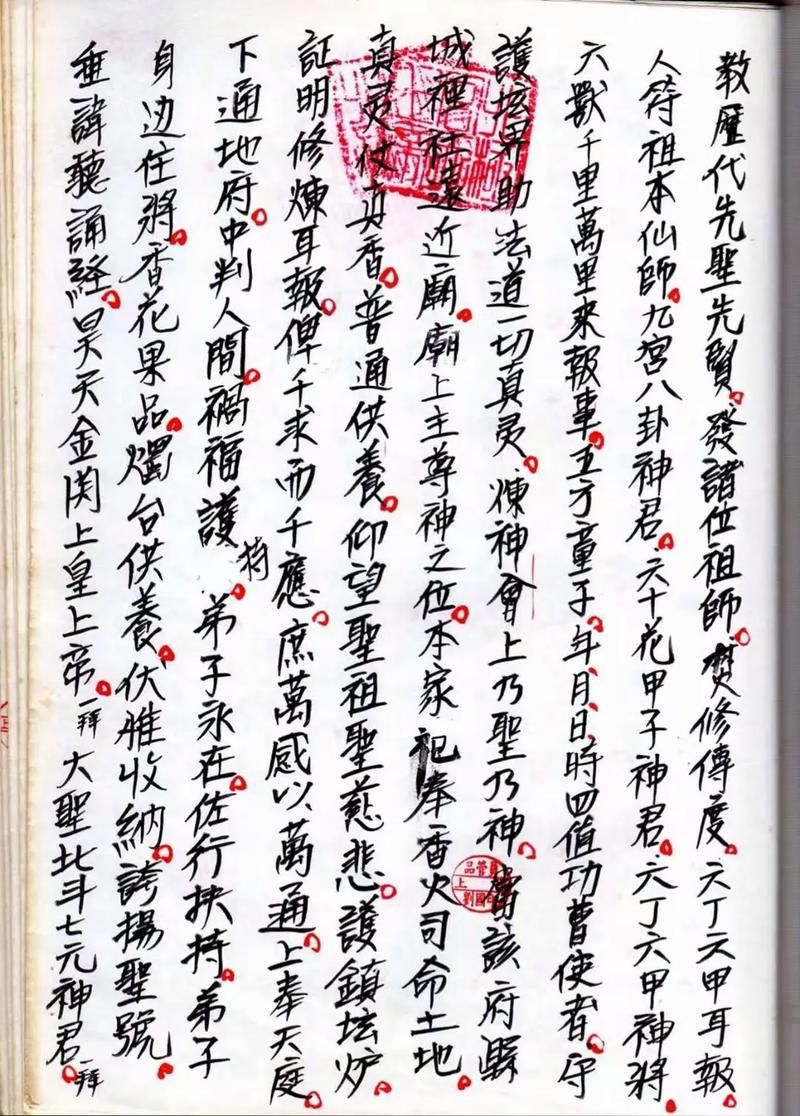 教歷代先聖先賢。發諸位祖師。焚修傳度。六丁六甲耳報。
人符祖本仙師。九宮八卦神君。六十花甲子神君。六丁六甲神將。
六獸千里萬里來報事。五方童子。年、月、日、時四值功曹使者。守
護坛界助法道一切真灵。煉神會上乃聖乃神。當該府縣
城裡社遠近廟。廟上主尊神之位。本家祀奉香火司命土地。
真灵仗真香。普通供養。仰望聖祖聖慈悲。護鎮坛炉。
証明修煉耳報。俾千求而千應。庶萬感以萬通。上奉天庭。
下通地府。中判人間。禍福護持。弟子永在。佐行扶持。弟子
身边住將。香花果品。燭台供養。伏惟收納。誇揚聖號。
垂諱聽誦経。昊天金闵上皇上帝。一拜 大聖北斗七元神君。一拜
品管
上
劉國